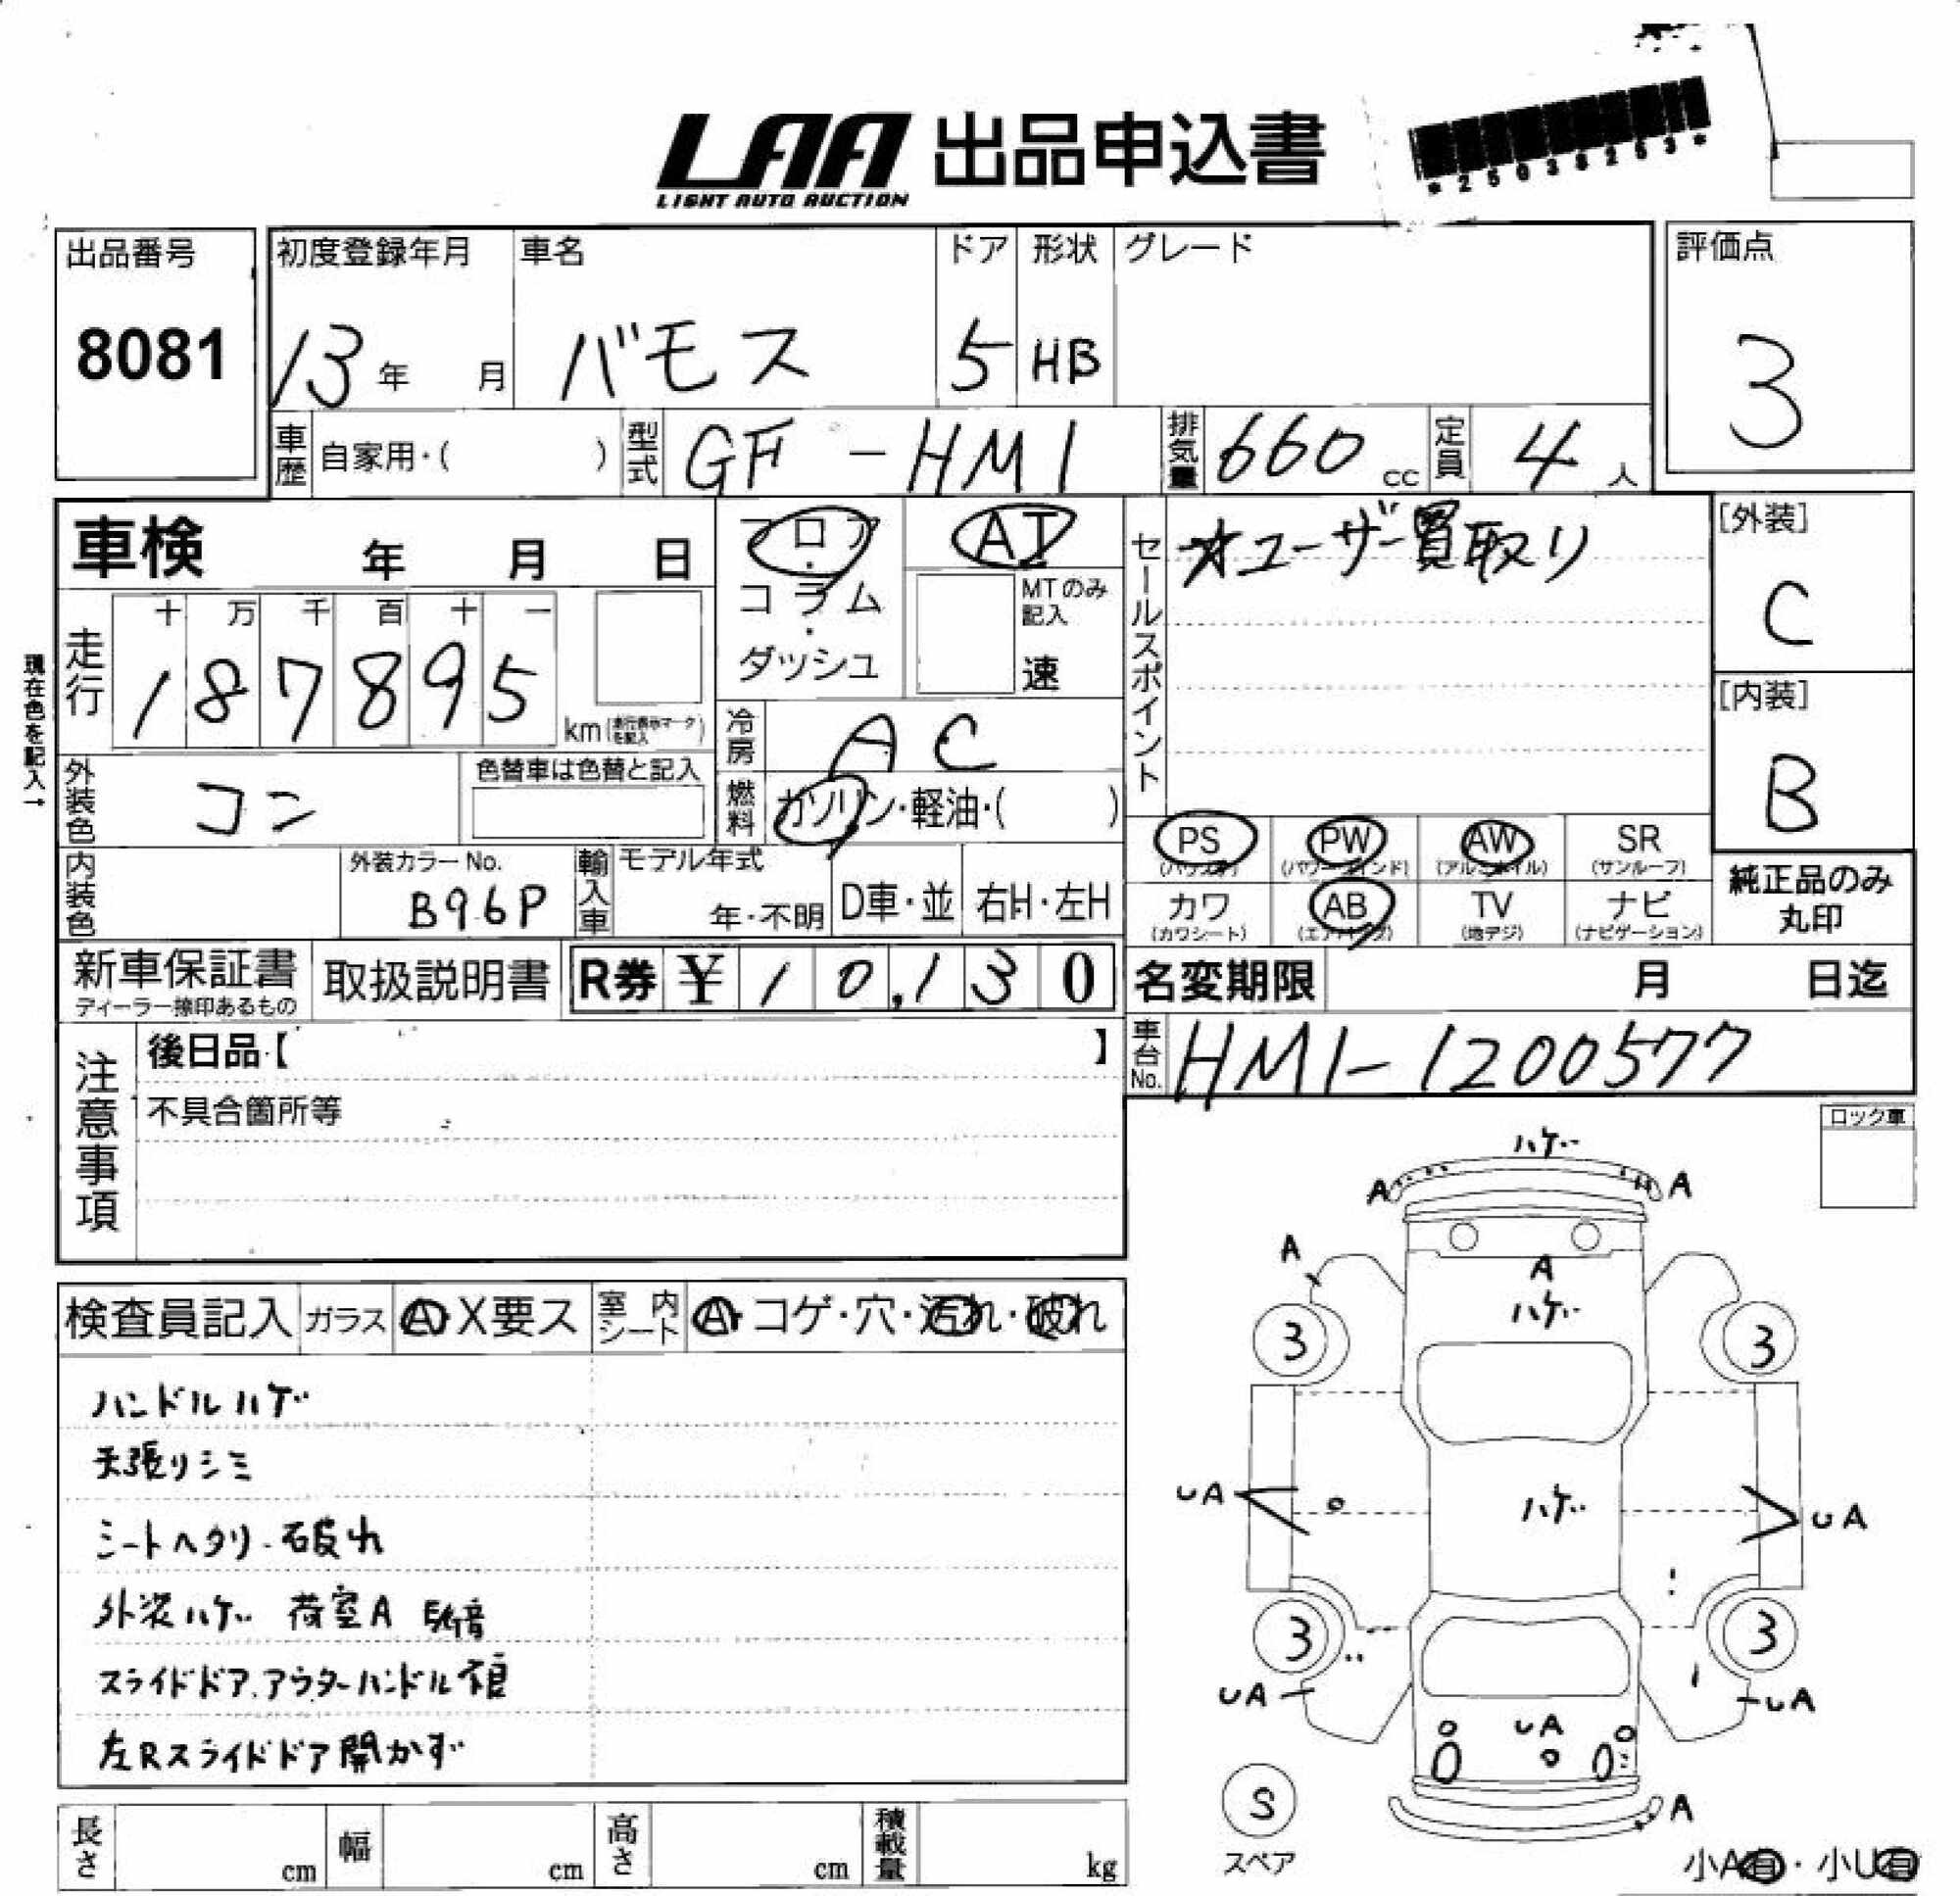 LAA 出品申込書
LIGHT AUTO AUCTION
*25038253*
出品番号
8081
初度登録年月
13年 月
車名
バモス
ドア
5
形状
HB
グレード
評価点
3
車歴
自家用・( )
型式
GF-HM1
排気量
660 cc
定員
4 人
車検 年 月 日
フロア・コラム・ダッシュ
AT
MTのみ記入
速
セールスポイント
☆ユーザー買取り
[外装]
C
[内装]
B
現在色を記入→
走行
十 万 千 百 十 一
1 8 7 8 9 5
km
冷房
AC
外装色
コン
色替車は色替と記入
燃料
ガソリン・軽油・( )
PS
PW
AW
SR
(パワステ) (パワーウインド) (アルミホイル) (サンルーフ)
カワ
AB
TV
ナビ
(カワシート) (エアバッグ) (地デジ) (ナビゲーション)
純正品のみ
丸印
内装色
外装カラーNo.
B96P
輸入車
モデル年式
年・不明
D車・並
右H・左H
新車保証書
ディーラー捺印あるもの
取扱説明書
R券 ¥ 10,130
名変期限 月 日迄
車台No.
HM1-1200577
注意事項
後日品【 】
不具合箇所等
ロック車
検査員記入
ガラス
A・X要ス
室内シート
A・コゲ・穴・汚れ・破れ
ハンドルハゲ
天張りシミ
シートヘタリ・破れ
外装ハゲ 荷室A
スライドドア、アウターハンドル不良
左Rスライドドア開かず
ハゲ
A
A
A
A
ハゲ
3
3
UA
ハゲ
UA
3
3
UA
UA
UA
A
S
スペア
小A有・小U有
長さ cm
幅 cm
高さ cm
積載量 kg